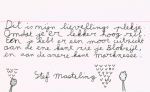 Dit is mijn lievelings plekje
Omdat je er lekker hoog zit
en je hebt er een mooi uitzicht
aan de ene kant zie je Blokzijl,
en aan de andere kant Marknesse.
Stef Masteling